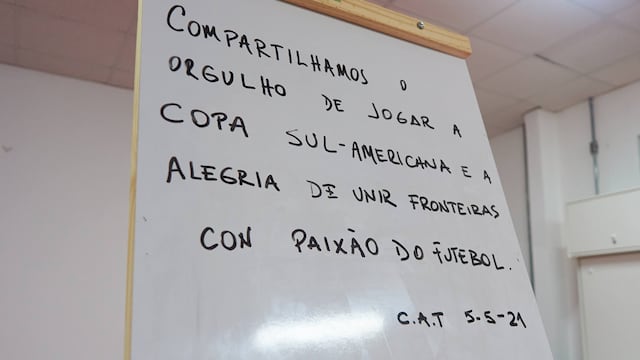 COMPARTILHAMOS O
ORGULHO DE JOGAR A
COPA SUL-AMERICANA E A
ALEGRIA DE UNIR FRONTEIRAS
CON PAIXÃO DO FUTEBOL.
C.A.T 5-5-21